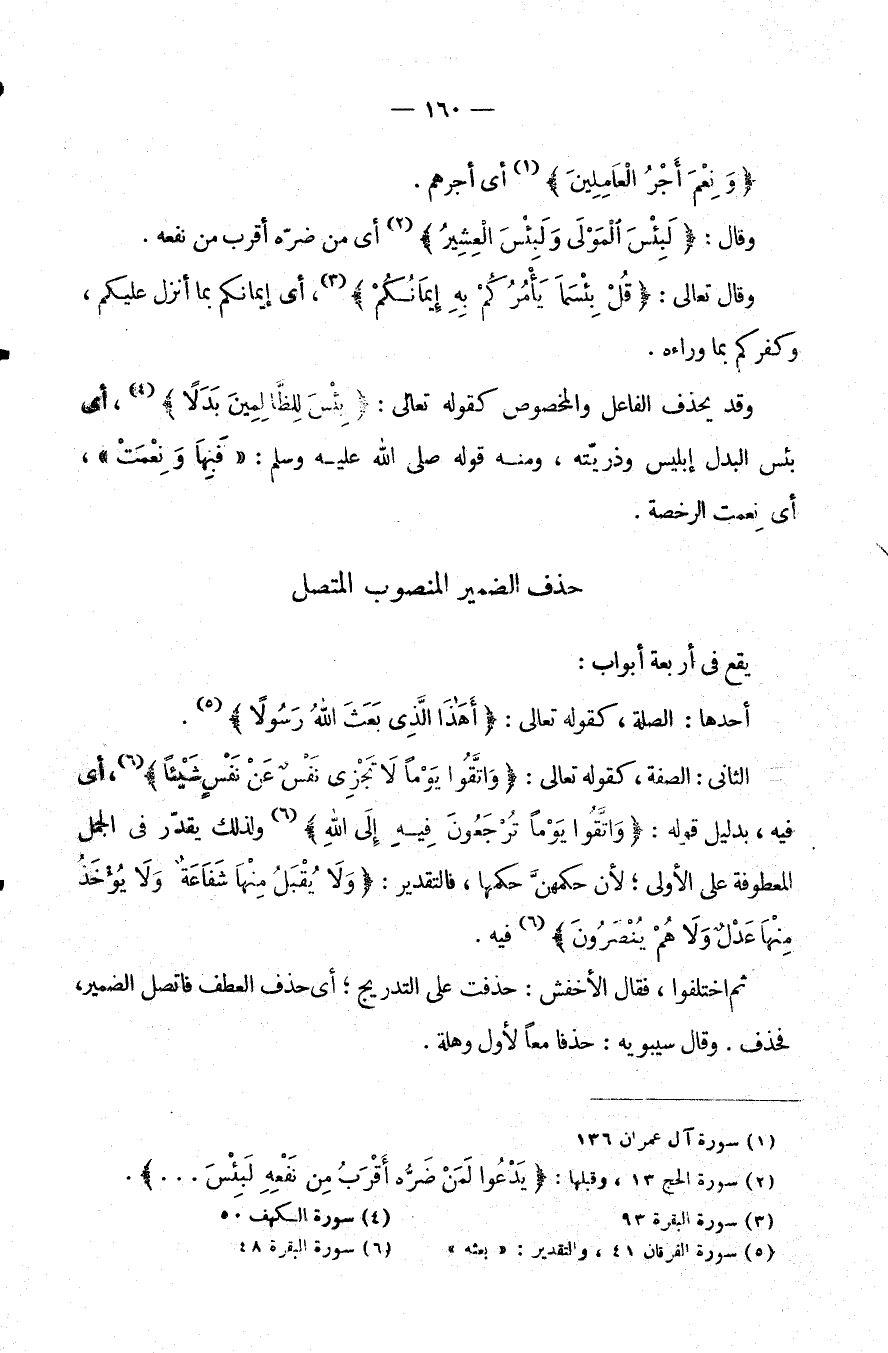 — ١٦٠ —
﴿ وَنِعْمَ أَجْرُ الْعَامِلِينَ ﴾ (١) أى أجرهم .
وقال : ﴿ لَبِئْسَ الْمَوْلَى وَلَبِئْسَ الْعِشِيرُ ﴾ (٢) أى من ضرّه أقرب من نفعه .
وقال تعالى : ﴿ قُلْ بِئْسَمَا يَأْمُرُكُمْ بِهِ إِيمَانُكُمْ ﴾ (٣)، أى إيمانكم بما أنزل عليكم ،
وكفركم بما وراءه .
وقد يحذف الفاعل والمخصوص كقوله تعالى : ﴿ بِئْسَ لِلظَّالِمِينَ بَدَلًا ﴾ (٤) ، أى
بئس البدل إبليس وذريّته ، ومنه قوله صلى الله عليه وسلم : « فَبِهَا وَنِعْمَتْ » ،
أى نِعمت الرخصة .
حذف الضمير المنصوب المتصل
يقع فى أربعة أبواب :
أحدها : الصلة ، كقوله تعالى : ﴿ أَهَٰذَا الَّذِى بَعَثَ اللهُ رَسُولًا ﴾ (٥) .
الثانى : الصفة ، كقوله تعالى : ﴿ وَاتَّقُوا يَوْماً لَا تَجْزِى نَفْسٌ عَنْ نَفْسٍ شَيْئاً ﴾ (٦)، أى
فيه ، بدليل قوله : ﴿ وَاتَّقُوا يَوْماً تُرْجَعُونَ فِيهِ إِلَى اللهِ ﴾ (٦) ولذلك يقدّر فى الجمل
المعطوفة على الأولى ؛ لأن حكمهنّ حكمها ، فالتقدير : ﴿ وَلَا يُقْبَلُ مِنْهَا شَفَاعَةٌ وَلَا يُؤْخَذُ
مِنْهَا عَدْلٌ وَلَا هُمْ يُنْصَرُونَ ﴾ (٦) فيه .
ثم اختلفوا ، فقال الأخفش : حذفت على التدريج ؛ أى حذف العطف فاتصل الضمير،
فحذف . وقال سيبويه : حذفا معاً لأول وهلة .
(١) سورة آل عمران ١٣٦
(٢) سورة الحج ١٣ ، وقبلها : ﴿ يَدْعُوا لَمَنْ ضَرُّه أَقْرَبُ مِن نَفْعِهِ لَبِئْسَ . . . ﴾ .
(٣) سورة البقرة ٩٣ (٤) سورة الكهف ٥٠
(٥) سورة الفرقان ٤١ ، والتقدير : « بعثه » (٦) سورة البقرة ٤٨